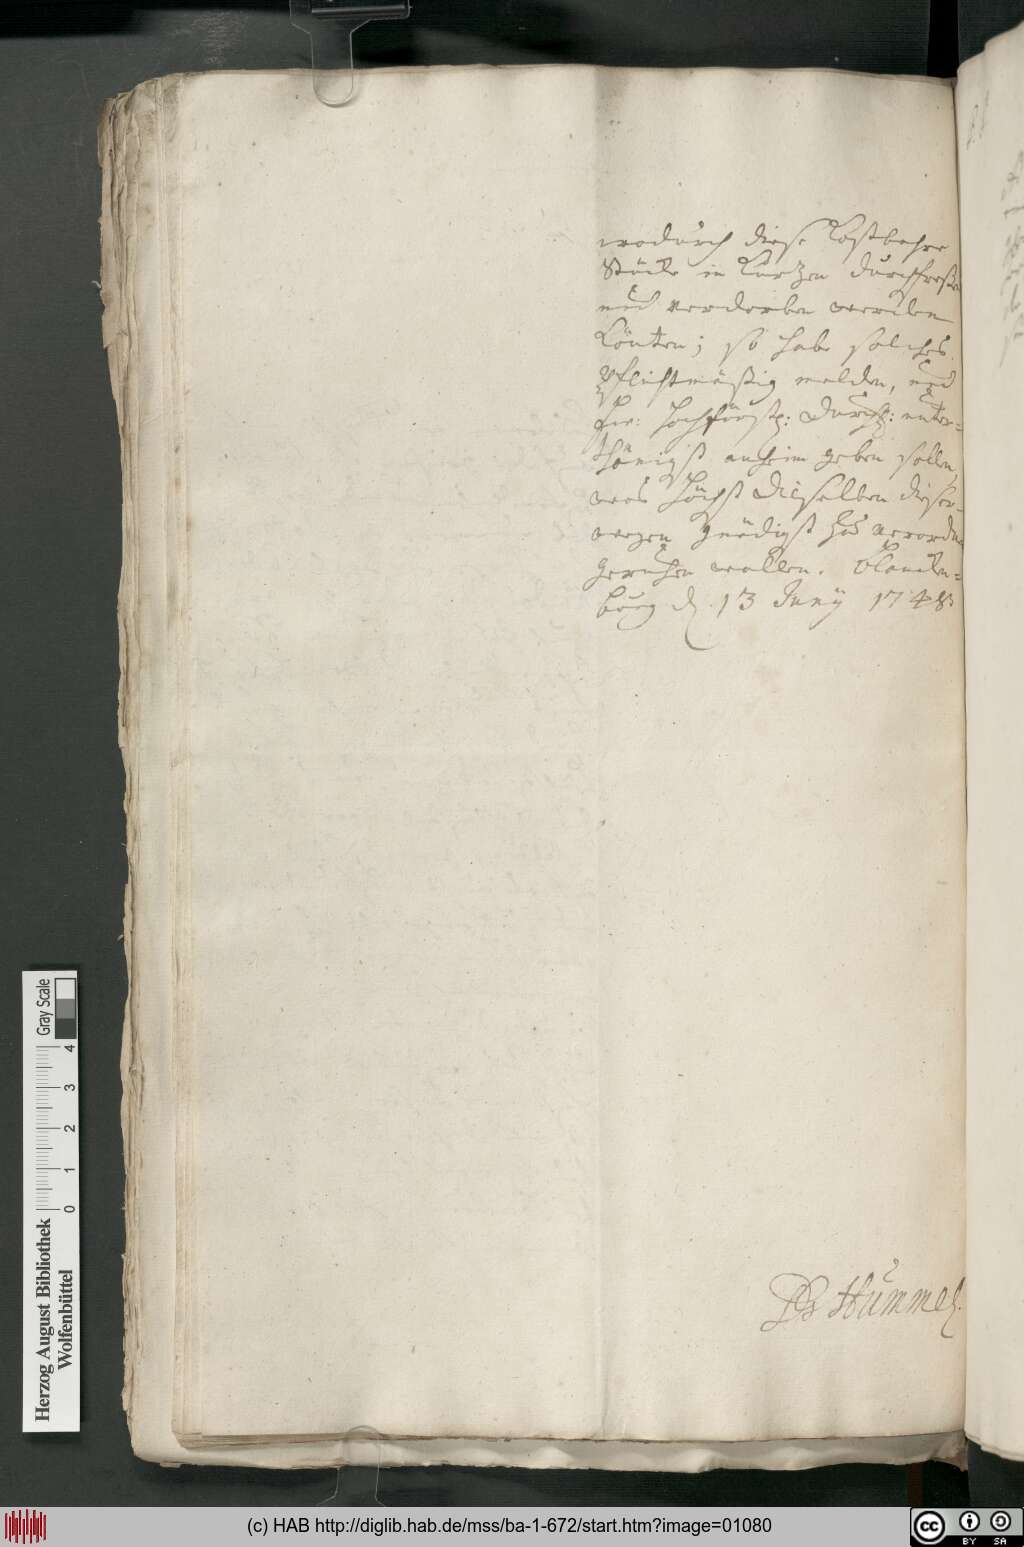 wodurch diese Kostbahre
Stücke in Kurtzen durchfreßen
und verdorben werden
Könten; so habe solches
Pflichtmäßig melden, und
Ew: Hochfürstl: Durchl: unter=
thänigst anheim geben sollen,
was Höchst Dieselben dieser=
wegen gnädigst zu verordnen
geruhen wollen. Blancken=
burg d. 13 Juny 1748
Hummel.
Herzog August Bibliothek
Wolfenbüttel
0 1 2 3 4
Gray Scale
(c) HAB http://diglib.hab.de/mss/ba-1-672/start.htm?image=01080
cc BY SA